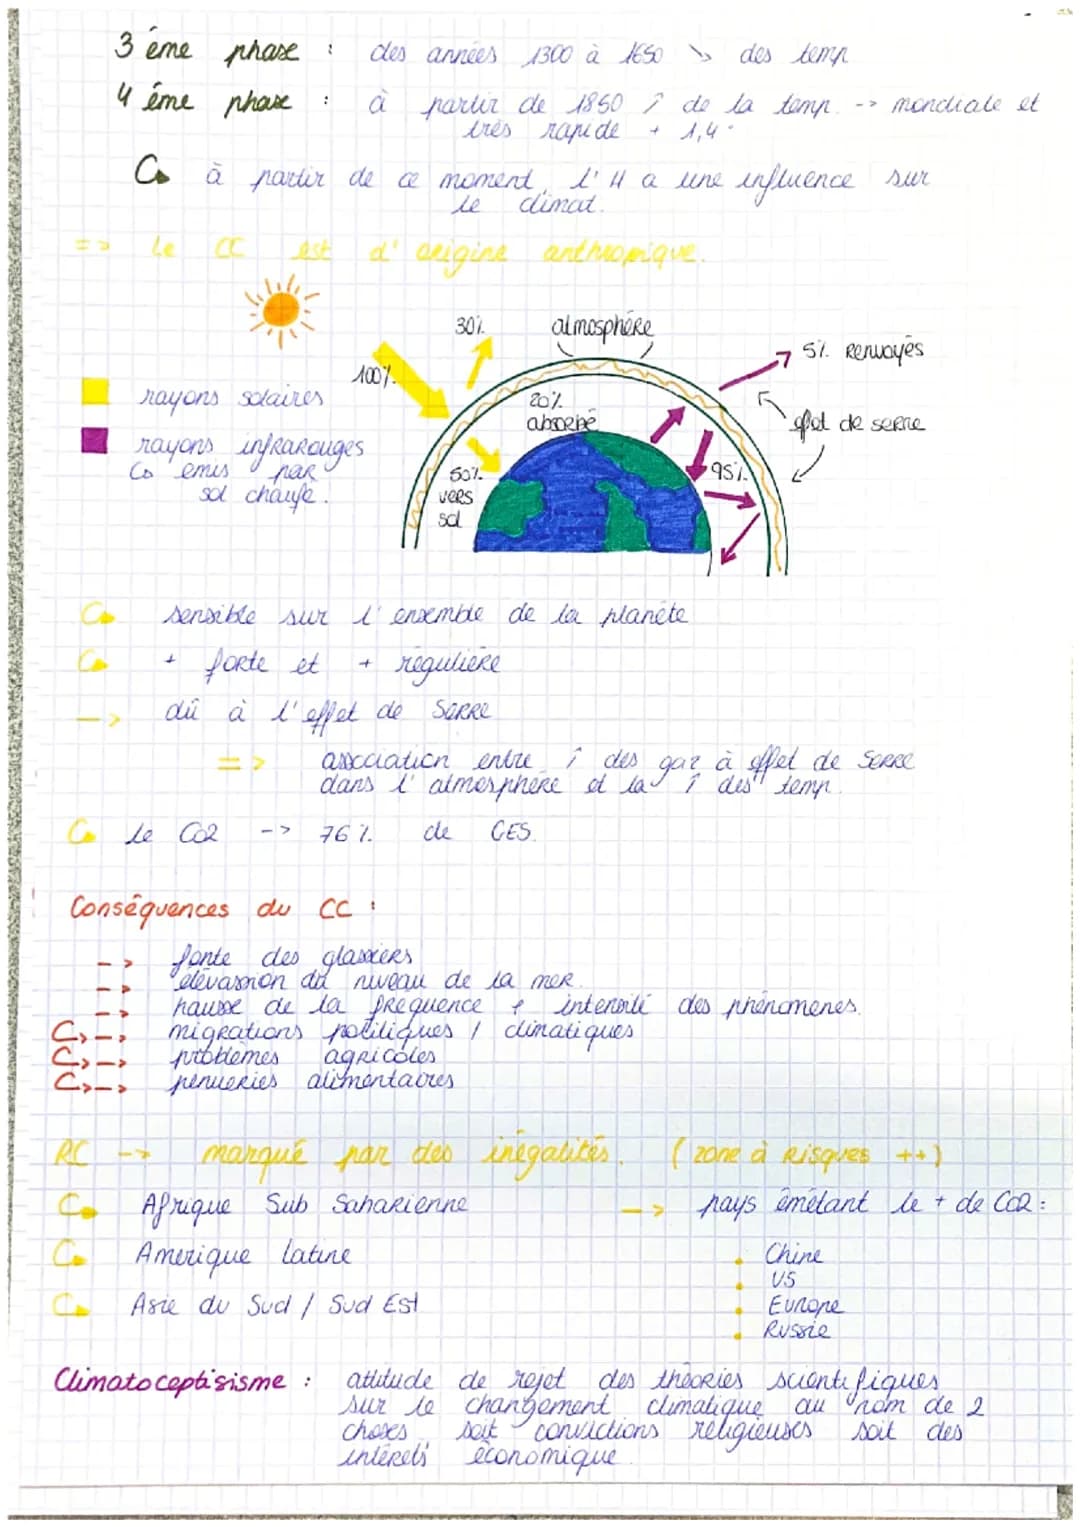 3 éme phase : des années 1300 à 1650 ↘ des temp
4 éme phase : à partir de 1850 ↑ de la temp --> mondiale et
très rapide + 1,4°
à partir de ce moment, l'H a une influence sur
le climat.
=> Le CC est d'origine anthropique.
30%
atmosphère
5% Renvoyés
100%
rayons solaires
20%
absorbé
effet de serre
rayons infrarouges
émis par
sol chauffe.
50%
vers
sol
95%
sensible sur l'ensemble de la planète
+ forte et + régulière
--> dû à l'effet de Serre
=> association entre ↑ des gaz à effet de Serre
dans l'atmosphère et la ↑ des temp.
le Co2 --> 76% de GES.
Conséquences du CC :
--> fonte des glassiers
--> élévassion du niveau de la mer.
--> hausse de la fréquence + intensité des phénomenes.
--> migrations politiques / climatiques
--> problèmes agricoles
--> penueries alimentaires
RC --> marqué par des inégalités. (zone à Risques ++)
Afrique Sub Saharienne
--> pays émétant le + de Co2 :
Amerique latine
Chine
US
Asie du Sud / Sud Est
Europe
Russie
Climatoceptisisme : attitude de rejet des théories scientifiques
sur le changement climatique au nom de 2
choses soit convictions religieuses soit des
intérets économique.